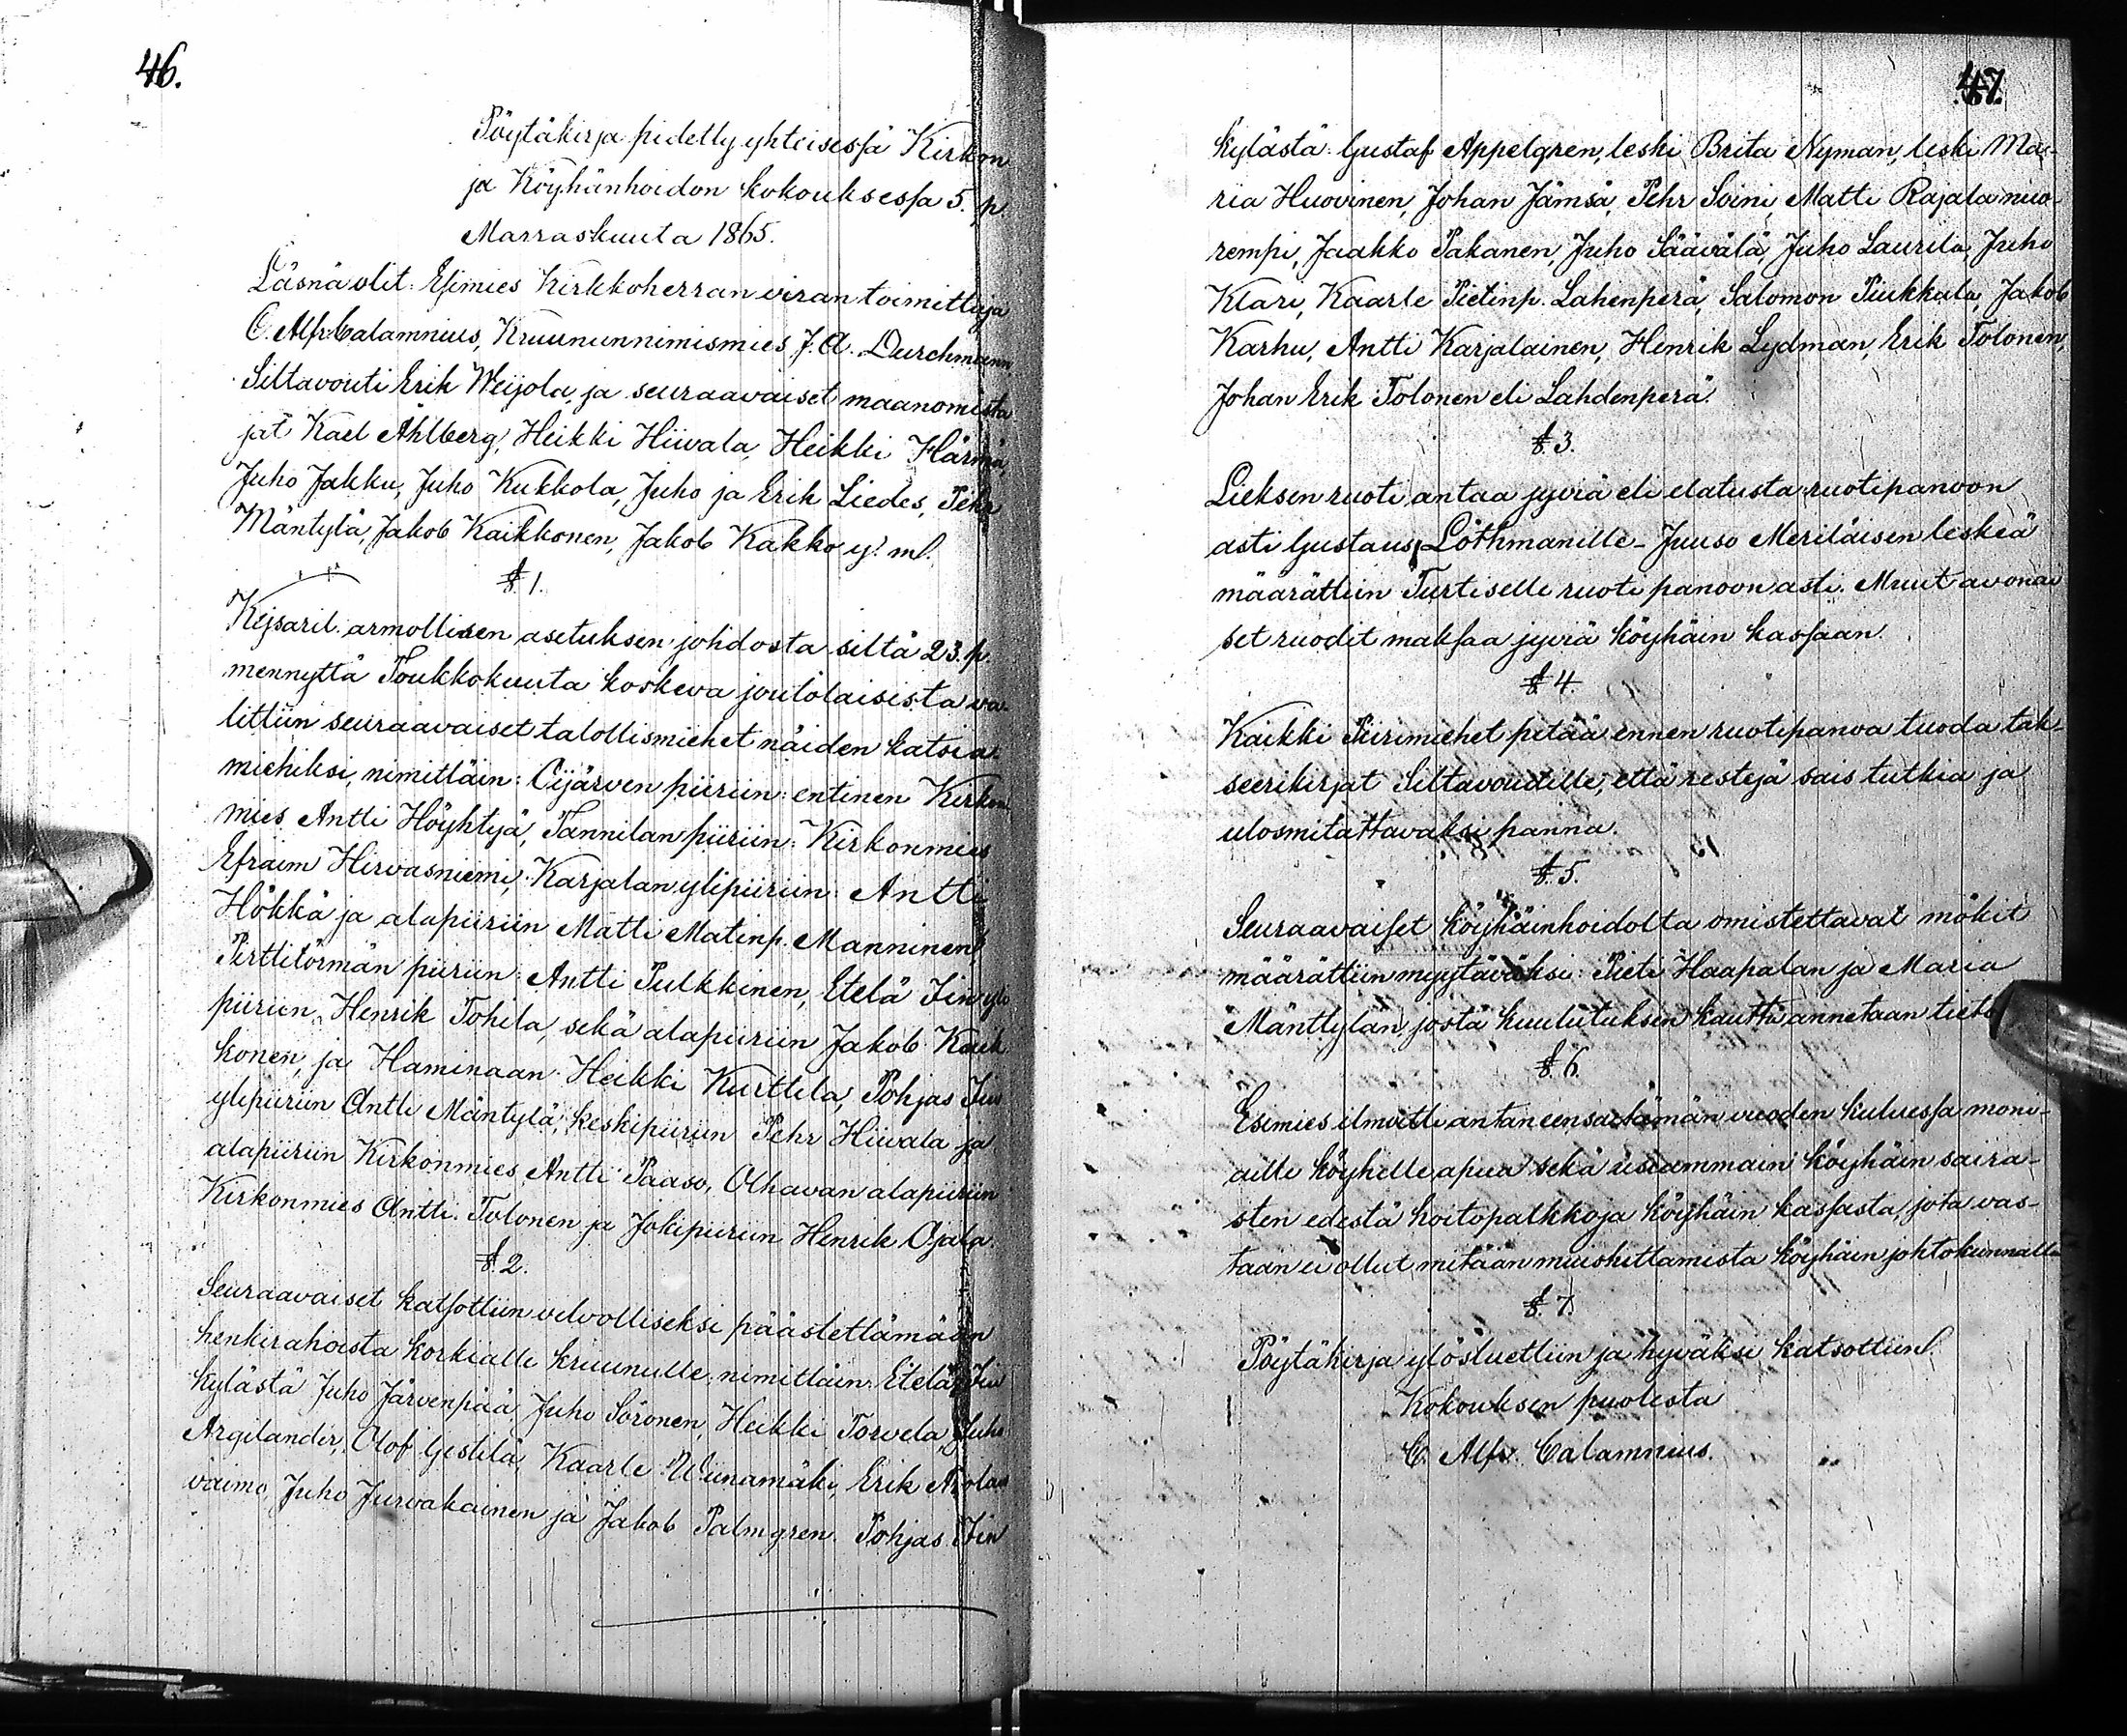 46.
Pöytäkirja pidetty yhteisessä Kirkon
ja Köyhänhoidon kokouksessa 5. p.
Marraskuuta 1865.
Läsnä olit: Esimies Kirkkoherran viran toimittaja
C. Alfr. Calamnius, Kruununnimismies J. A. Durchmann
Siltavouti Erik Weijola, ja seuraavaiset maanomista
jat Kael Åhlberg, Heikki Hiivala, Heikki Härmä,
Juho Jakku, Juho Kukkola, Juho ja Erik Liedes, Pehr
Mäntylä, Jakob Kaikkonen, Jakob Kakko y. m.
§. 1.
Kejsaril. armollisen asetuksen johdosta siltä 23. p.
mennyttä Toukkokuuta koskeva joutolaisista va-
littiin seuraavaiset talollismiehet näiden katsia-
miehiksi, nimittäin: Oijärven piiriin: entinen Kirkon
mies Antti Höyhtyä, Tannilan piiriin: Kirkonmies
Efraim Hirvasniemi, Karjalan ylipiiriin: Antti
Hökkä ja alapiiriin Matti Matinp. Manninen,
Pirttitörmän piiriin: Antti Pulkkinen, Etelä Iin yli
piiriin, Henrik Tohila, sekä alapiiriin Jakob Kaik
konen, ja Haminaan Heikki Kurttila, Pohjas Iin
ylipiiriin Antti Mäntylä, keskipiiriin Pehr Hiivala ja
alapiiriin Kirkonmies Antti Paaso, Olhavan alapiiriin
Kirkonmies Antti Tolonen ja Jokipiiriin Henrik Ojala.
§. 2.
Seuraavaiset katsottiin velvolliseksi päästettämään
henkirahoista korkialle kruunulle, nimittäin: Etelä Iin
kylästä Juho Järvenpää, Juho Soronen, Heikki Torvela, Juho
Argilander, Olof Gestilä, Kaarle Wiinamäki, Erik
vaimo, Juho Jurvakainen ja Jakob Palmgren. Pohjas Iin
47.
kylästä: Gustaf Appelgren, leski Brita Nyman, leski Ma-
ria Huovinen, Johan Jämsä, Pehr Soini, Matti Rajala nuo-
rempi, Jaakko Pakanen, Juho Säävälä, Juho Laurila, Juho
Klari, Kaarle Pietinp. Lahenperä, Salomon Piukkala, Jakob
Karhu, Antti Karjalainen, Henrik Lydman, Erik Tolonen,
Johan Erik Tolonen eli Lahdenperä.
§. 3.
Lieksen ruoti antaa jyviä eli elatusta ruotipanoon
asti Gustaus Löthmanille - Juuso Meriläisen leskeä
määrättiin Turtiselle ruoti panoon asti. Muut avonai
set ruodit maksaa jyviä köyhäin kassaan.
§. 4.
Kaikki Piirimiehet pitää ennen ruotipanoa tuoda tak-
seerikirjat Siltavoudille, että restejä sais tutkia ja
ulosmitattavaksi panna.
§. 5.
Seuraavaiset köyhäinhoidolta omistettavat mökit
määrättiin myytäväksi: Pieti Haapalan ja Maria
Mänttylän, jostä kuulutuksen kautta annetaan tieto
§. 6.
Esimies ilmoitti antaneensa tämän vuoden kuluessa moni-
aille köyhelle apua sekä usiammain köyhäin saira-
sten edestä hoitopalkkoja köyhäin kassasta, jota vas-
taan ei ollut mitään muistuttamista köyhäin johtokunnalla
§. 7.
Pöytäkirja ylösluettiin ja hyväksi katsottiin.
Kokouksen puolesta
C. Alfr. Calamnius.